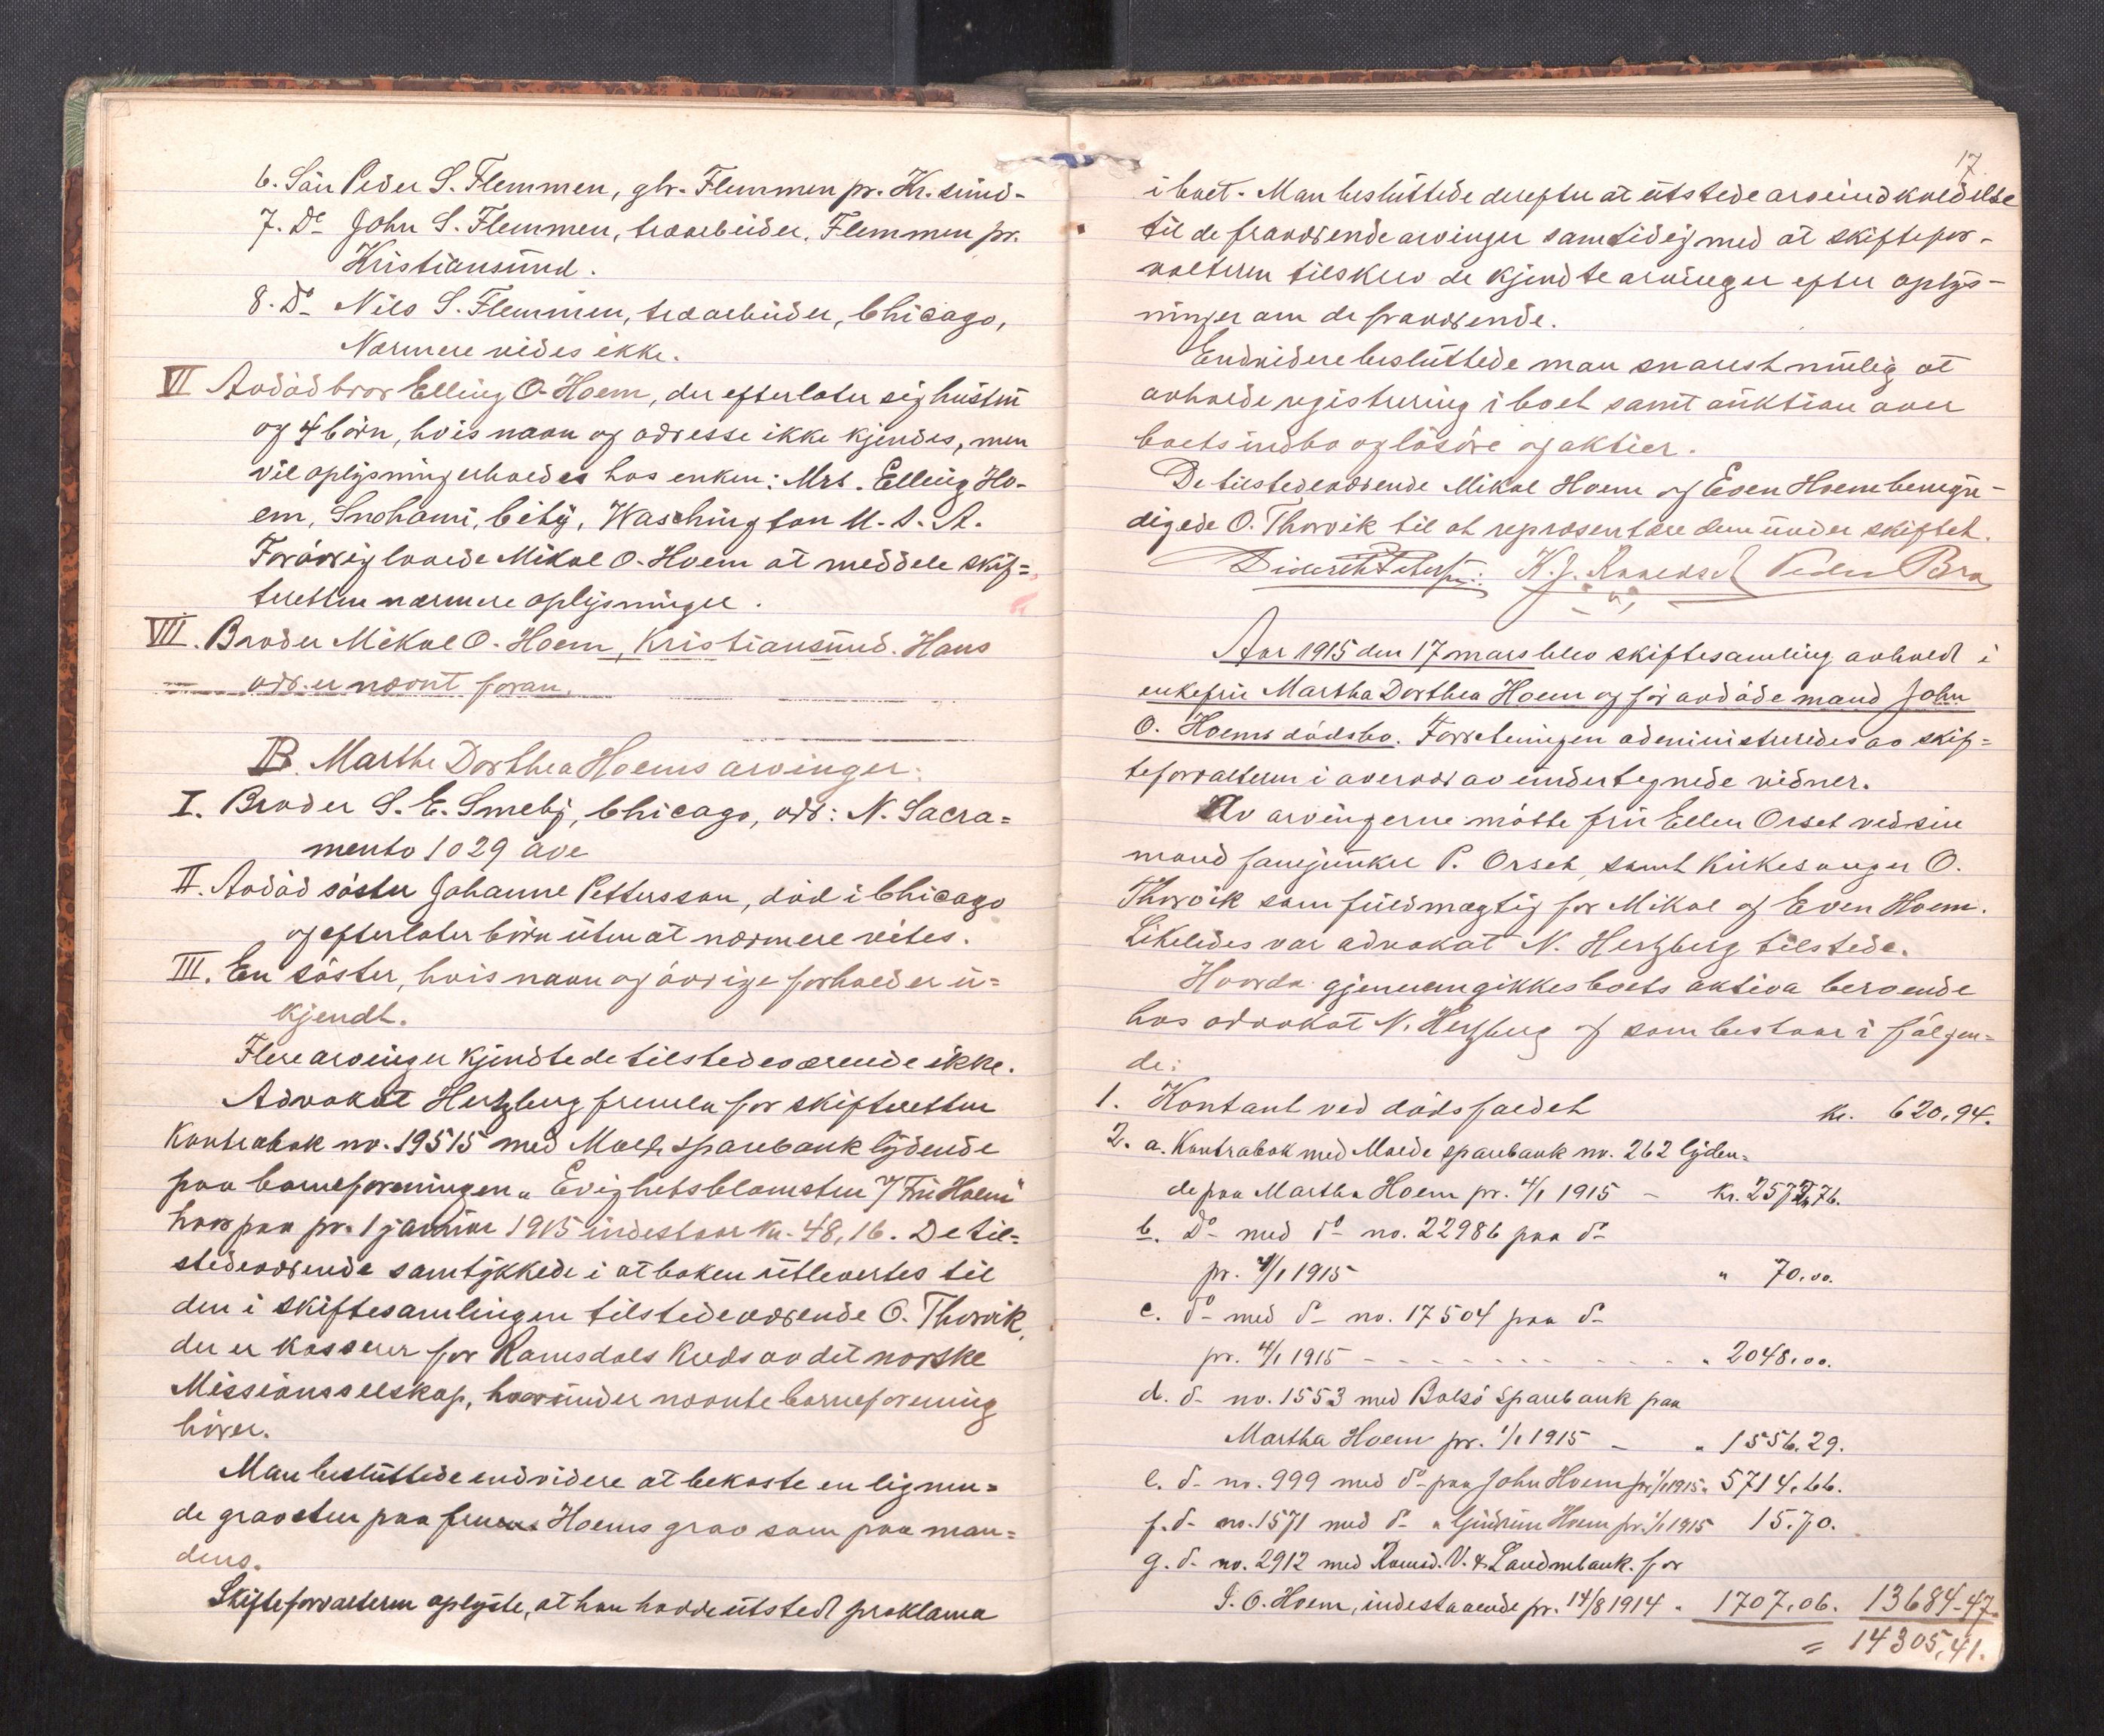 6. Sön Peder S. Flemmen, gbr. Flemmen pr. Kr.sund.
7. Do John S. Flemmen, træarbeider, Flemmen pr.
Kristiansund.
8. Do Nils S. Flemmen, træarbeider, Chicago,
Nærmere vides ikke.
VI Avdød bror Elling O. Hoem, der efterlater sig hustru
og 4 børn, hvis navn og adresse ikke kjendes, men
vil oplysning erholdes hos enken: Mrs. Elling Ho-
em, Snohami, City, Waschington U.S.A.
Forøvrig lovede Mikal O. Hoem at meddele skif=
teretten nærmere oplysninger.
VII. Broder Mikal O. Hoem, Kristiansund. Hans
adr. er nævnt foran.
B. Marthe Dorthea Hoems arvinger:
I. Broder S. E. Smeby, Chicago, adr: N. Sacra=
mento 1029 ave
II. Avdød søster Johanne Pettersson, død i Chicago
og efterlater børn uten at nærmere vites.
III. En søster, hvis navn og øvrige forhold er u=
kjendt.
Flere arvinger kjendte de tilstedeværende ikke.
Advokat Hertzberg fremla for skifteretten
Kontrabok no. 19515 med Molde sparebank lydende
paa barneforeningen „Evighetsblomsten v/ Fru Hoem"
hvorpaa pr. 1 januar 1915 indestaar kr. 48,16. De til=
stedeværende samtykkede i at boken utlevertes til
den i skiftesamlingen tilstedeværende O. Thorvik,
der er kasserer for Ramsdals kreds av det norske
Missionsselskap, hvorunder nævnte barneforening
hører.
Man besluttede endvidere at bekoste en lignen=
de gravsten paa fru Hoems grav som paa man=
dens.
Skifteforvalteren oplyste, at han havde utstedt proklama
17
i boet. Man besluttede derefter at utstede arveindkaldelse
til de fraværende arvinger samtidig med at skiftefor-
valteren tilskrev de kjendte arvinger efter oplys-
ninger om de fraværende.
Endvidere besluttede man snarest mulig at
avholde registrering i boet samt auktion over
boets indbo og løsøre og aktier.
De tilstedeværende Mikal Hoem og Even Hoem bemyn-
digede O. Thorvik til at repræsentere dem under skiftet.
K. J. Peder Bra
Aar 1915 den 17 mars blev skiftesamling avholdt i
enkefru Martha Dorthea Hoem og før avdøde mand John
O. Hoems dødsbo. Forretningen administreredes av skif=
teforvalteren i overvær av undertegnede vidner.
Av arvingerne møtte fru Ellen Orset ved sin
mand fanejunker P. Orset, samt kirkesanger O.
Thorvik som fuldmægtig for Mikal og Even Hoem.
Likeledes var advokat N. Hertzberg tilstede.
Hvorda gjennemgikkes boets aktiva beroende
hos advokat N. Hertzberg og som bestaar i følgen=
de:
1. Kontant ved dødsfaldet kr. 620,94.
2. a. Kontrabok med Molde sparebank no. 262 lyden=
de paa Martha Hoem pr. 1/1 1915 - kr. 2572,76.
b. Do med do no. 22986 paa do
pr. 1/1 1915 " 70,00.
c. do med do no. 17504 paa do
pr. 1/1 1915 - - - - - - - - - - - - " 2048,00.
d. do no. 1553 med Bolsø Sparebank paa
Martha Hoem pr. 1/1 1915 - " 1556,29.
e. do no. 999 med do paa John Hoem pr. 1/1 1915 " 5714,66.
f. do no. 1571 med do " Gjurina Hoem pr. 1/1 1915 15,70.
g. do no. 2912 med Romsd. V. & Landmbank. for
J. O. Hoem, indestaaende pr. 14/8 1914 " 1707,06. 13684,47.
= 14305,41.